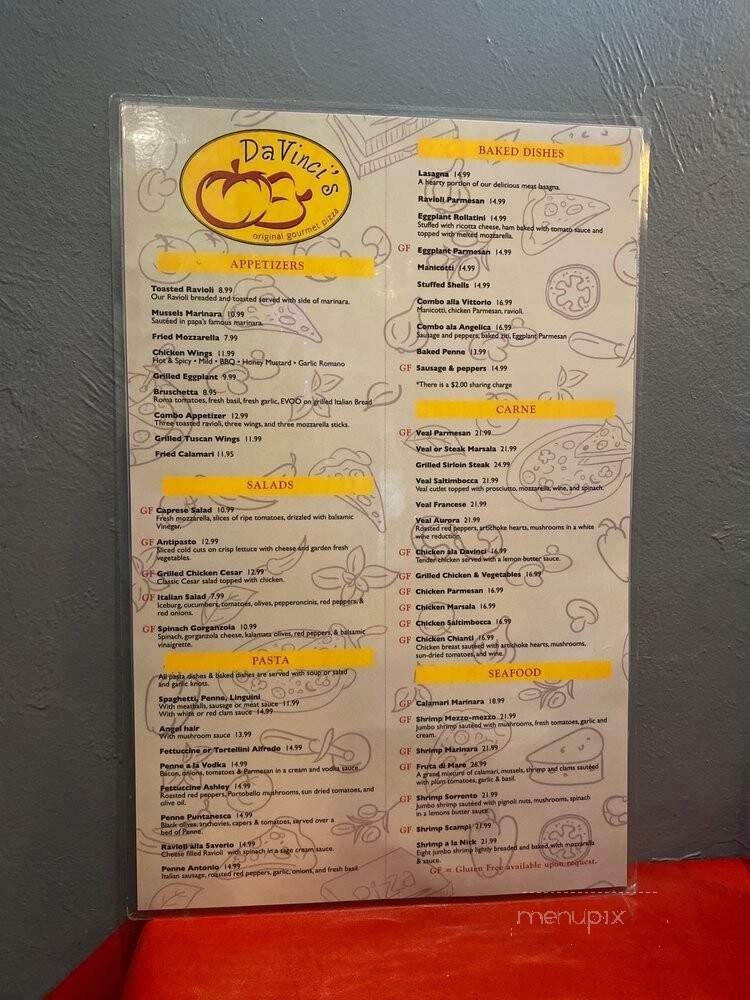 DaVinci's
original gourmet pizza
APPETIZERS
Toasted Ravioli 8.99
Our Ravioli breaded and toasted served with side of marinara.
Mussels Marinara 10.99
Sautéed in papa's famous marinara.
Fried Mozzarella 7.99
Chicken Wings 11.99
Hot & Spicy • Mild • BBQ • Honey Mustard • Garlic Romano
Grilled Eggplant 9.99
Bruschetta 8.95
Roma tomatoes, fresh basil, fresh garlic, EVOO on grilled Italian Bread
Combo Appetizer 12.99
Three toasted ravioli, three wings, and three mozzarella sticks.
Grilled Tuscan Wings 11.99
Fried Calamari 11.95
SALADS
GF Caprese Salad 10.99
Fresh mozzarella, slices of ripe tomatoes, drizzled with balsamic
Vinegar.
GF Antipasto 12.99
Sliced cold cuts on crisp lettuce with cheese and garden fresh
vegetables.
GF Grilled Chicken Cesar 12.99
Classic Cesar salad topped with chicken.
GF Italian Salad 7.99
Iceburg, cucumbers, tomatoes, olives, pepperoncinis, red peppers, &
red onions.
GF Spinach Gorganzola 10.99
Spinach, gorganzola cheese, kalamata olives, red peppers, & balsamic
vinaigrette.
PASTA
All pasta dishes & baked dishes are served with soup or salad
and garlic knots.
Spaghetti, Penne, Linguini
With meatballs, sausage or meat sauce 11.99
With white or red clam sauce 14.99
Angel hair
With mushroom sauce 13.99
Fettuccine or Tortellini Alfredo 14.99
Penne a la Vodka 14.99
Bacon, onions, tomatoes & Parmesan in a cream and vodka sauce
Fettuccine Ashley 14.99
Roasted red peppers, Portobello mushrooms, sun dried tomatoes, and
olive oil.
Penne Puntanesca 14.99
Black olives, anchovies, capers & tomatoes, served over a
bed of Penne.
Ravioli alla Saverio 14.99
Cheese filled Ravioli with spinach in a sage cream sauce.
Penne Antonio 14.99
Italian sausage, roasted red peppers, garlic, onions, and fresh basil
BAKED DISHES
Lasagna 14.99
A hearty portion of our delicious meat lasagna.
Ravioli Parmesan 14.99
Eggplant Rollatini 14.99
Stuffed with ricotta cheese, ham baked with tomato sauce and
topped with melted mozzarella.
GF Eggplant Parmesan 14.99
Manicotti 14.99
Stuffed Shells 14.99
Combo alla Vittorio 16.99
Manicotti, chicken Parmesan, ravioli.
Combo ala Angelica 16.99
Sausage and peppers, baked ziti, Eggplant Parmesan
Baked Penne 13.99
GF Sausage & peppers 14.99
*There is a $2.00 sharing charge
CARNE
GF Veal Parmesan 21.99
Veal or Steak Marsala 21.99
Grilled Sirloin Steak 24.99
Veal Saltimbocca 21.99
Veal cutlet topped with prosciutto, mozzarella, wine, and spinach.
Veal Francese 21.99
Veal Aurora 21.99
Roasted red peppers, artichoke hearts, mushrooms in a white
wine reduction.
GF Chicken ala Davinci 16.99
Tender chicken served with a lemon butter sauce.
GF Grilled Chicken & Vegetables 16.99
GF Chicken Parmesan 16.99
GF Chicken Marsala 16.99
GF Chicken Saltimbocca 16.99
GF Chicken Chianti 16.99
Chicken breast sautéed with artichoke hearts, mushrooms,
sun-dried tomatoes, and wine.
SEAFOOD
GF Calamari Marinara 18.99
GF Shrimp Mezzo-mezzo 21.99
Jumbo shrimp sautéed with mushrooms, fresh tomatoes, garlic and
cream.
GF Shrimp Marinara 21.99
GF Fruta di Mare 26.99
A grand mixture of calamari, mussels, shrimp and clams sautéed
with plum tomatoes, garlic & basil.
GF Shrimp Sorrento 21.99
Jumbo shrimp sautéed with pignoli nuts, mushrooms, spinach
in a lemons butter sauce.
GF Shrimp Scampi 21.99
Shrimp a la Nick 21.99
Eight jumbo shrimp lightly breaded and baked, with mozzarella
& sauce.
GF = Gluten Free available upon request.
Pizza
menupix